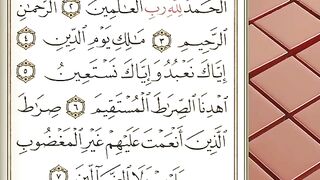 الْحَمْدُ لِلَّهِ رَبِّ الْعَٰلَمِينَ ٢ الرَّحْمَٰنِ
الرَّحِيمِ ٣ مَٰلِكِ يَوْمِ الدِّينِ ٤
إِيَّاكَ نَعْبُدُ وَإِيَّاكَ نَسْتَعِينُ ٥
اهْدِنَا الصِّرَٰطَ الْمُسْتَقِيمَ ٦ صِرَٰطَ
الَّذِينَ أَنْعَمْتَ عَلَيْهِمْ غَيْرِ الْمَغْضُوبِ
عَلَيْهِمْ وَلَا الضَّالِّينَ ٧